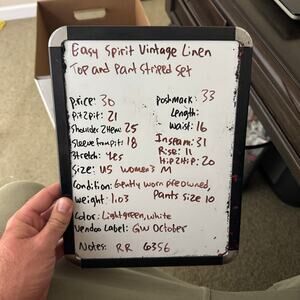 Easy Spirit Vintage Linen
Top and Pant Striped Set
Price: 30
Poshmark: 33
Pit2pit: 21
Length:
Shoulder2Hem: 25
Waist: 16
Sleeve from pit: 18
Inseam: 31
Stretch: Yes
Rise: 11
Size: US Women's M
Hip2Hip: 20
Condition: Gently worn preowned,
Weight: 1.03
Pants Size 10
Color: Light green, white
Vendoo Label: GW October
Notes: RR 6356